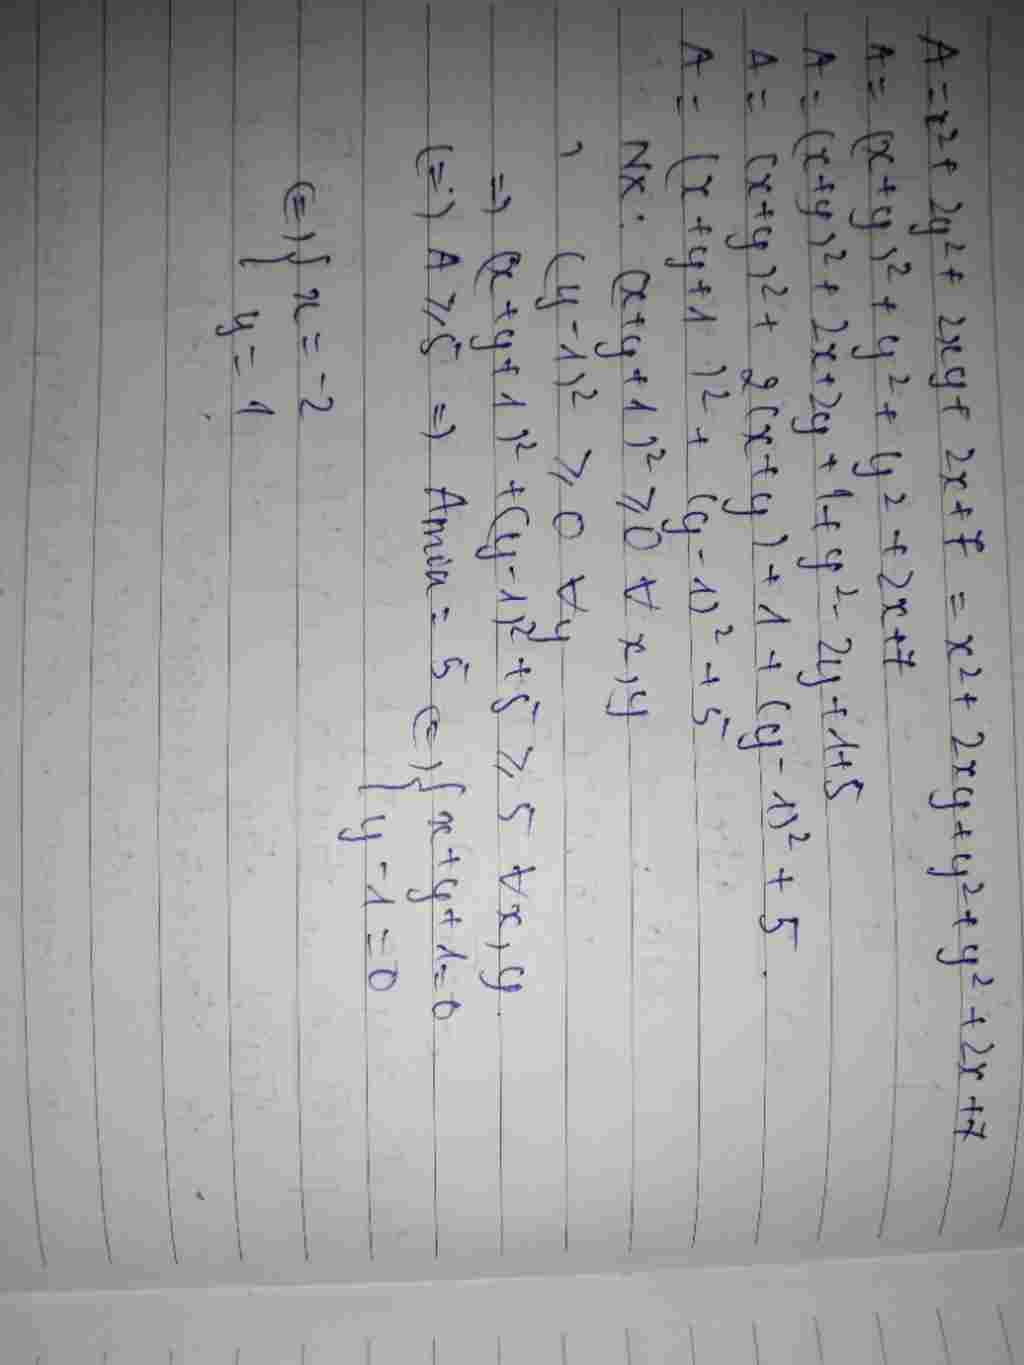 A = x² + 2y² + 2xy + 2x + 7 = x² + 2xy + y² + y² + 2x + 7
A = (x+y)² + y² + y² + 2x + 7
A = (x+y)² + 2x + 2y + 1 + y² - 2y + 1 + 5
A = (x+y)² + 2(x+y) + 1 + (y-1)² + 5.
A = (x+y+1)² + (y-1)² + 5
Nx: (x+y+1)² ⩾ 0 ∀ x, y
(y-1)² ⩾ 0 ∀y
=> (x+y+1)² + (y-1)² + 5 ⩾ 5 ∀x, y
(=) A ⩾ 5 => Amin = 5 (=) { x+y+1=0
y-1=0
(=) { x = -2
y = 1